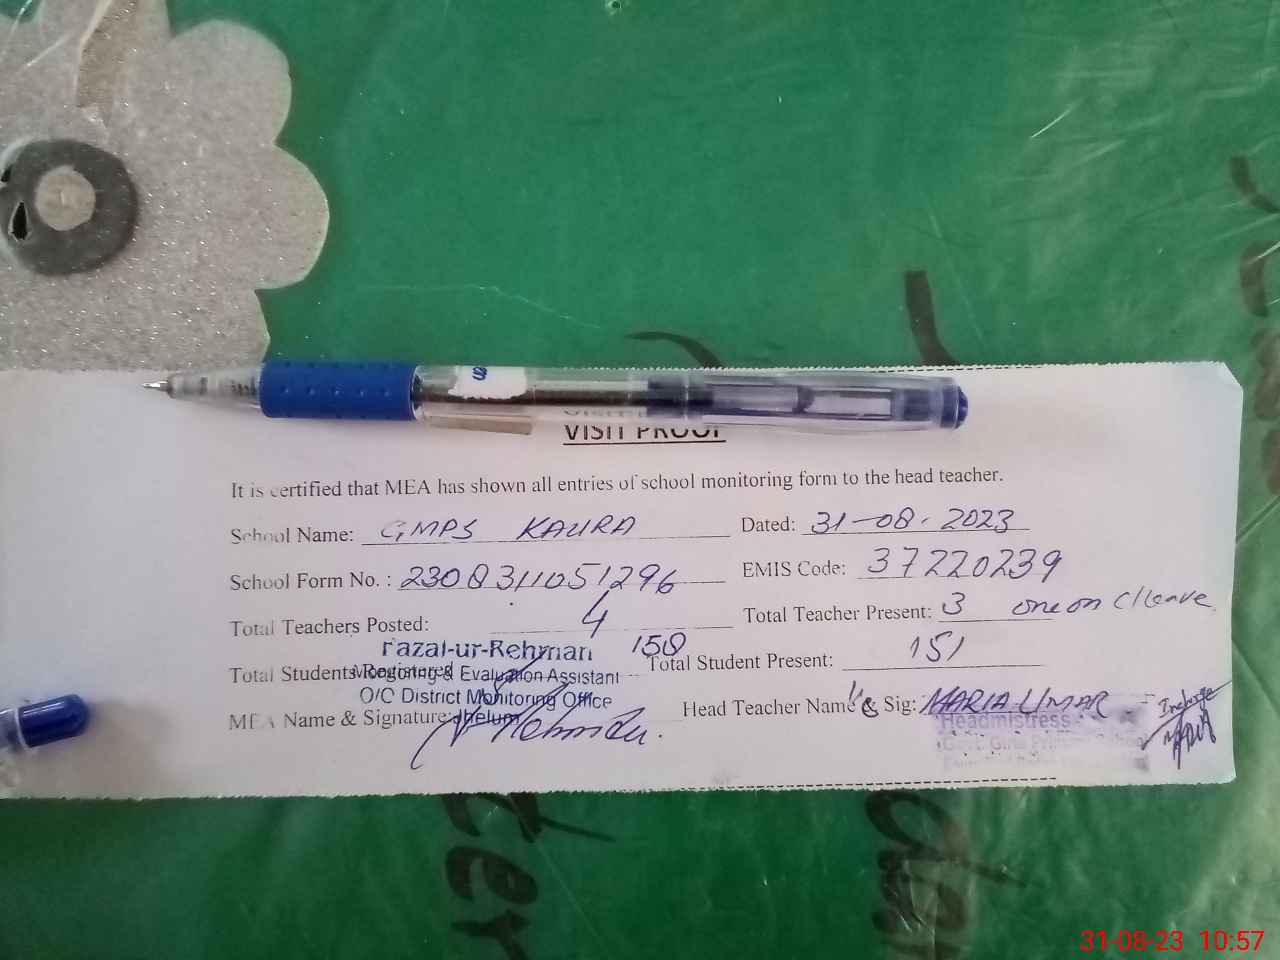 VISIT PROOF
It is certified that MEA has shown all entries of school monitoring form to the head teacher.
School Name: GMPS KAURA Dated: 31-08-2023
School Form No. : 2308311051296 EMIS Code: 37220239
Total Teachers Posted: 4 Total Teacher Present: 3 one on C/leave
Total Students Registered 158 Total Student Present: 151
Fazal-ur-Rehman
Monitoring & Evaluation Assistant
O/C District Monitoring Office
Jhelum
MEA Name & Signature: Head Teacher Name & Sig: MARIA UMAR
Incharge
Headmistress
Govt. Girls
31-08-23 10:57